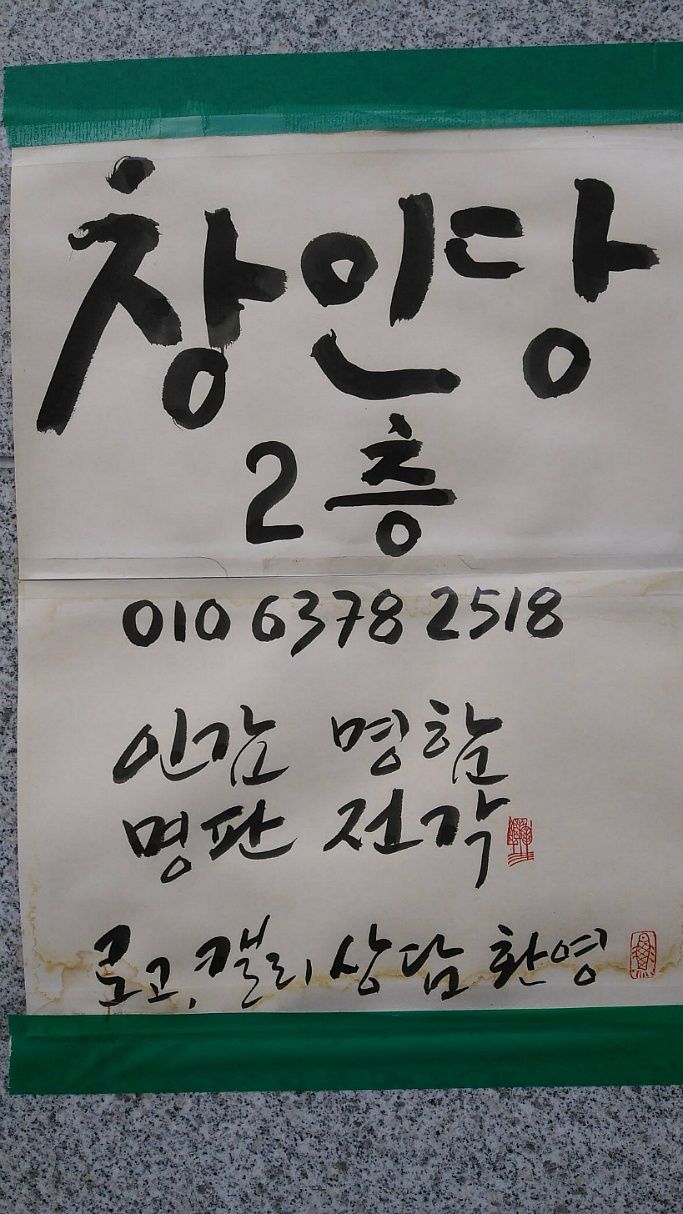 창인당
2층
010 6378 2518
인감 명함
명판 전각
로고, 캘리 상담 환영